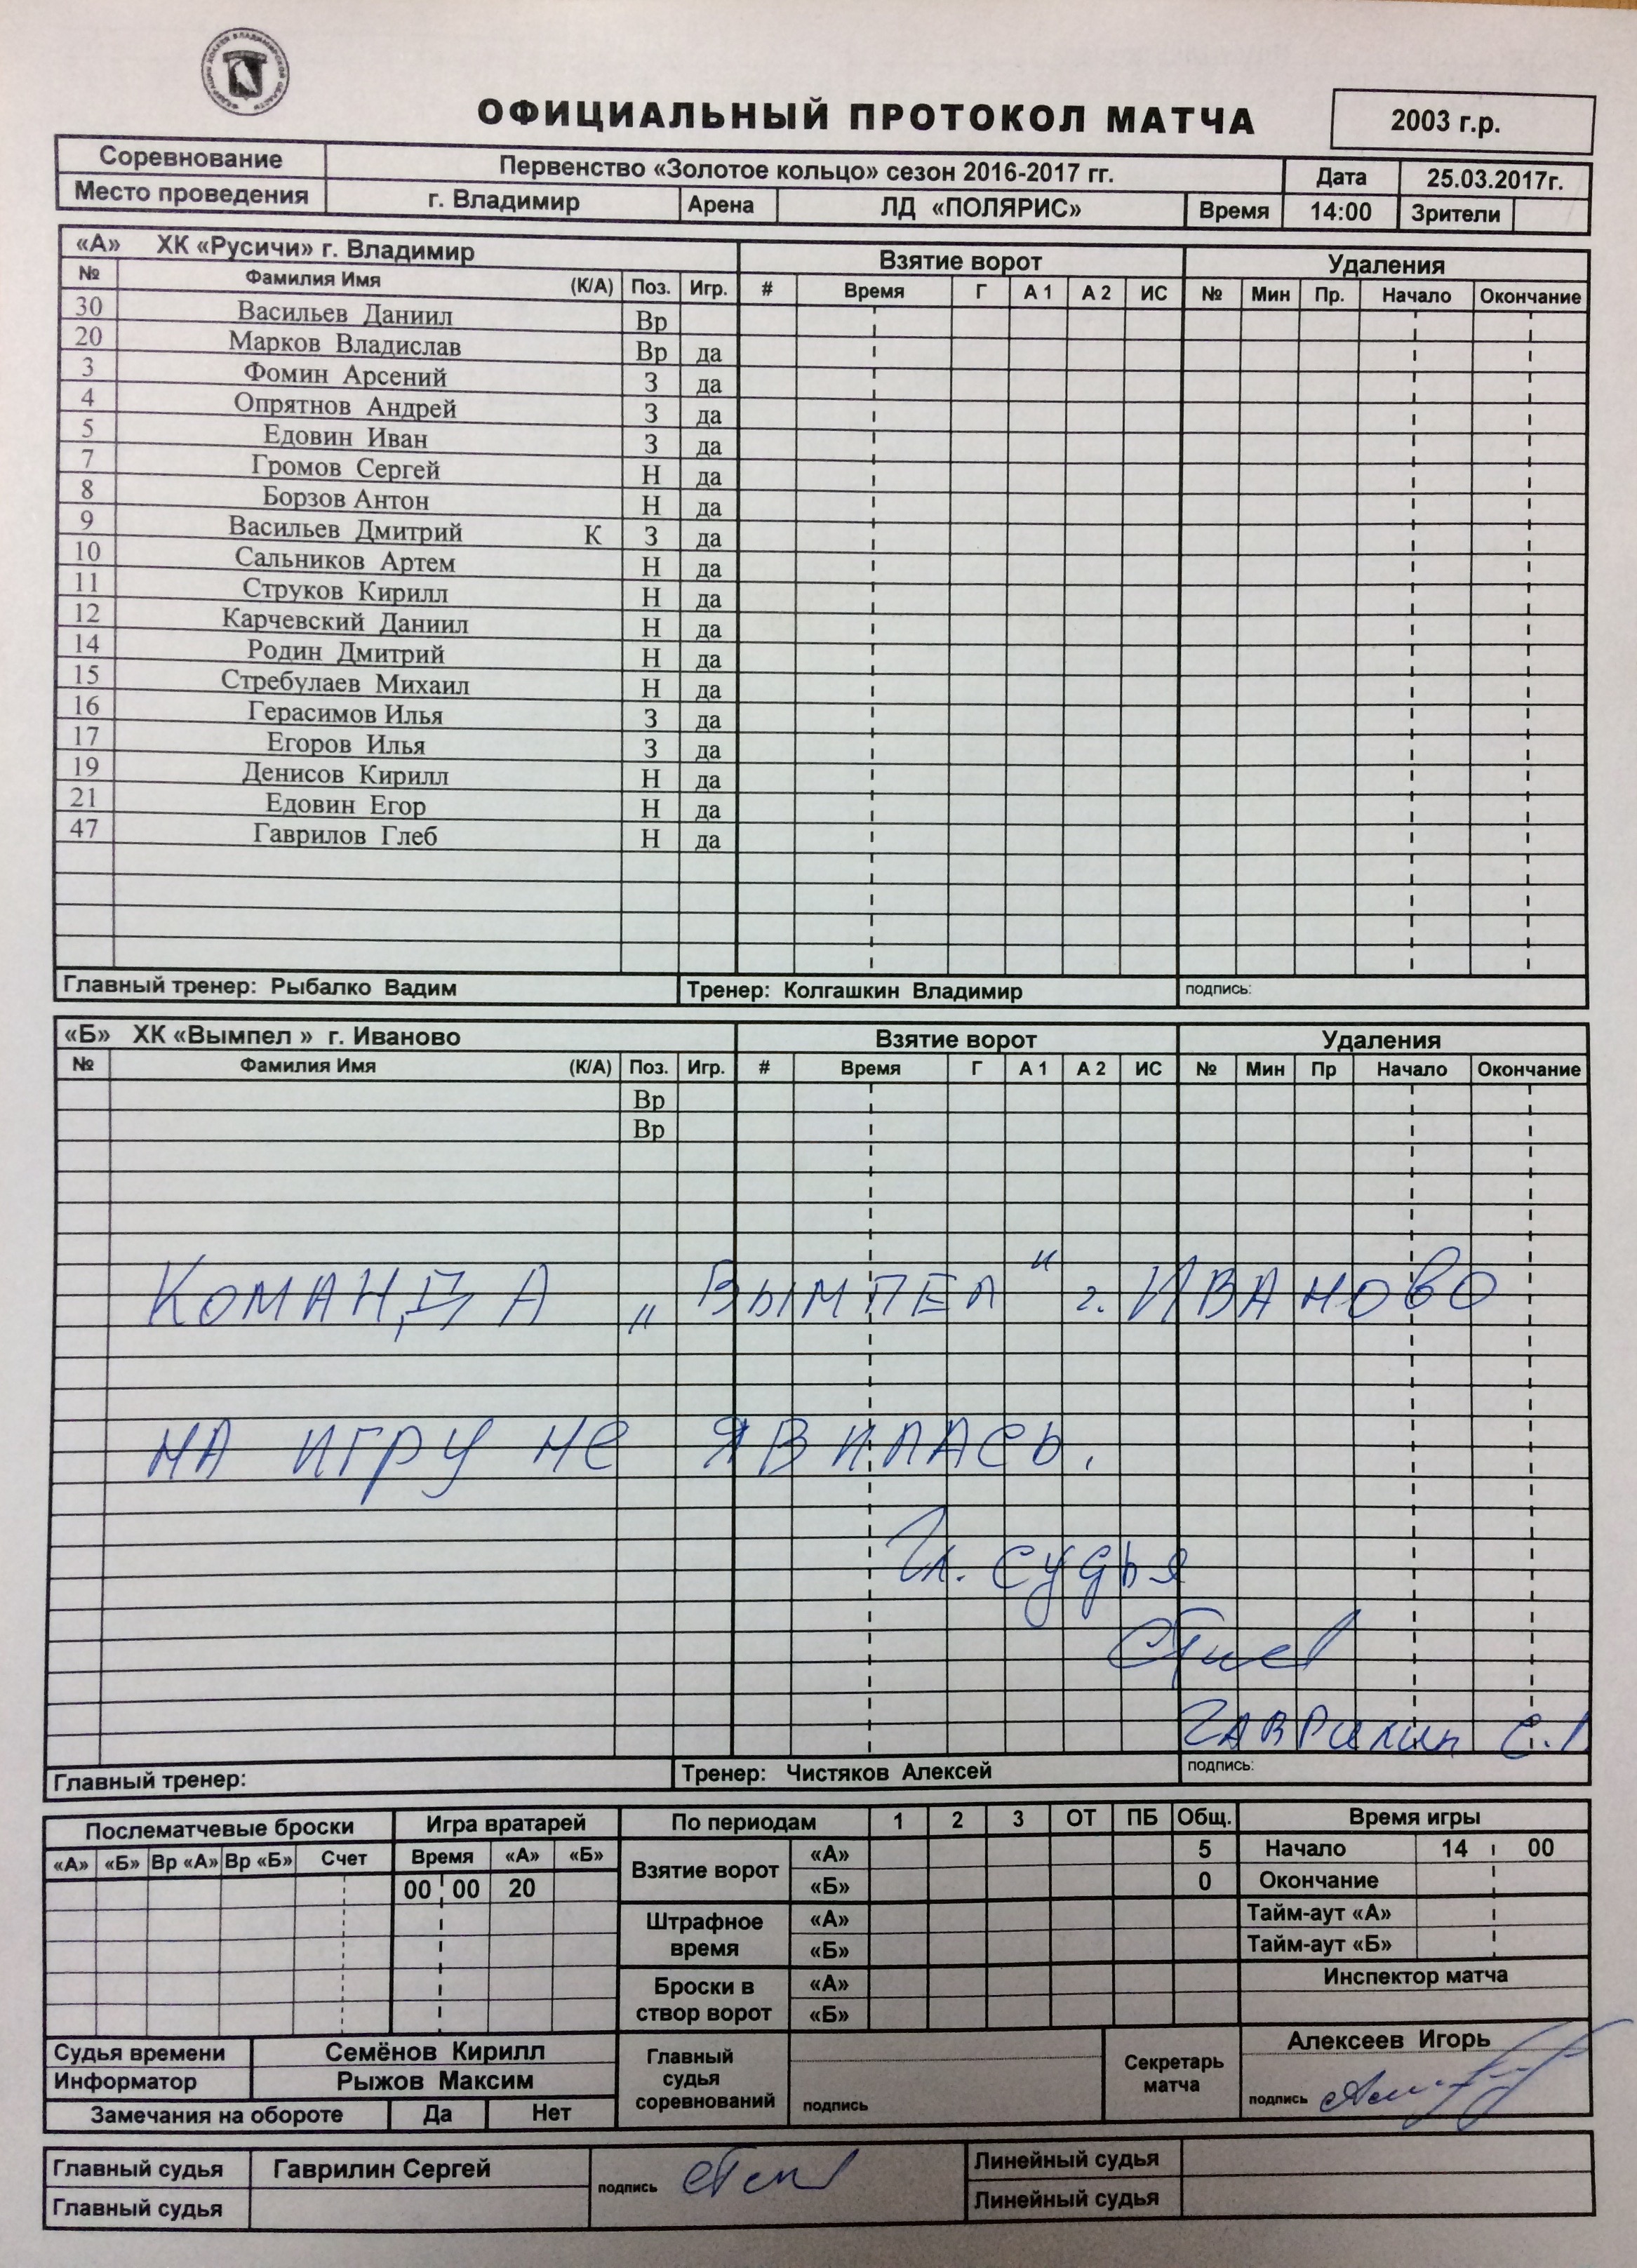 ФЕДЕРАЦИЯ ХОККЕЯ ВЛАДИМИРСКОЙ ОБЛАСТИ
ОФИЦИАЛЬНЫЙ ПРОТОКОЛ МАТЧА 2003 г.р.
Соревнование Первенство «Золотое кольцо» сезон 2016-2017 гг. Дата 25.03.2017г.
Место проведения г. Владимир Арена ЛД «ПОЛЯРИС» Время 14:00 Зрители
«А» ХК «Русичи» г. Владимир Взятие ворот Удаления
№ Фамилия Имя (К/А) Поз. Игр. # Время Г А 1 А 2 ИС № Мин Пр. Начало Окончание
30 Васильев Даниил Вр
20 Марков Владислав Вр да
3 Фомин Арсений З да
4 Опрятнов Андрей З да
5 Едовин Иван З да
7 Громов Сергей Н да
8 Борзов Антон Н да
9 Васильев Дмитрий К З да
10 Сальников Артем Н да
11 Струков Кирилл Н да
12 Карчевский Даниил Н да
14 Родин Дмитрий Н да
15 Стребулаев Михаил Н да
16 Герасимов Илья З да
17 Егоров Илья З да
19 Денисов Кирилл Н да
21 Едовин Егор Н да
47 Гаврилов Глеб Н да
Главный тренер: Рыбалко Вадим Тренер: Колгашкин Владимир подпись:
«Б» ХК «Вымпел » г. Иваново Взятие ворот Удаления
№ Фамилия Имя (К/А) Поз. Игр. # Время Г А 1 А 2 ИС № Мин Пр Начало Окончание
Вр
Вр
КОМАНДА „ВЫМПЕЛ" г. ИВАНОВО
НА ИГРУ НЕ ЯВИЛАСЬ.
Гл. судья
Гаврилин С.
Главный тренер: Тренер: Чистяков Алексей подпись:
Послематчевые броски Игра вратарей По периодам 1 2 3 ОТ ПБ Общ. Время игры
«А» «Б» Вр «А» Вр «Б» Счет Время «А» «Б» Взятие ворот «А» 5 Начало 14 00
00 00 20 «Б» 0 Окончание
Штрафное время «А» Тайм-аут «А»
«Б» Тайм-аут «Б»
Броски в створ ворот «А» Инспектор матча
«Б»
Судья времени Семёнов Кирилл Главный судья соревнований подпись Секретарь матча Алексеев Игорь
Информатор Рыжов Максим подпись
Замечания на обороте Да Нет
Главный судья Гаврилин Сергей подпись Линейный судья
Главный судья Линейный судья